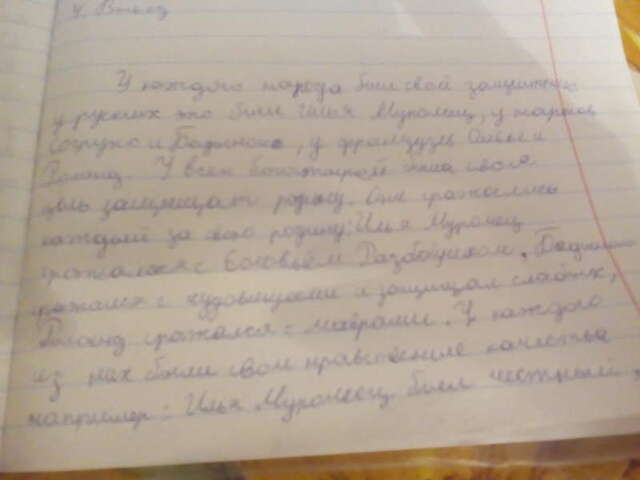 4. Вывод
У каждого народа был свой защитник
у русских это был Илья Муромец, у нартов
Сосруко и Бадыноко, у французов и
Роланд. У всех богатырей была своя
цель защищать родину. Они сражались
каждый за свою родину: Илья Муромец
сражался с Соловьём Разбойником.
сражался с чудовищами и защищал слабых,
Роланд сражался с маврами. У каждого
из них были свои нравственые качества
например: Илья Муромец был честный